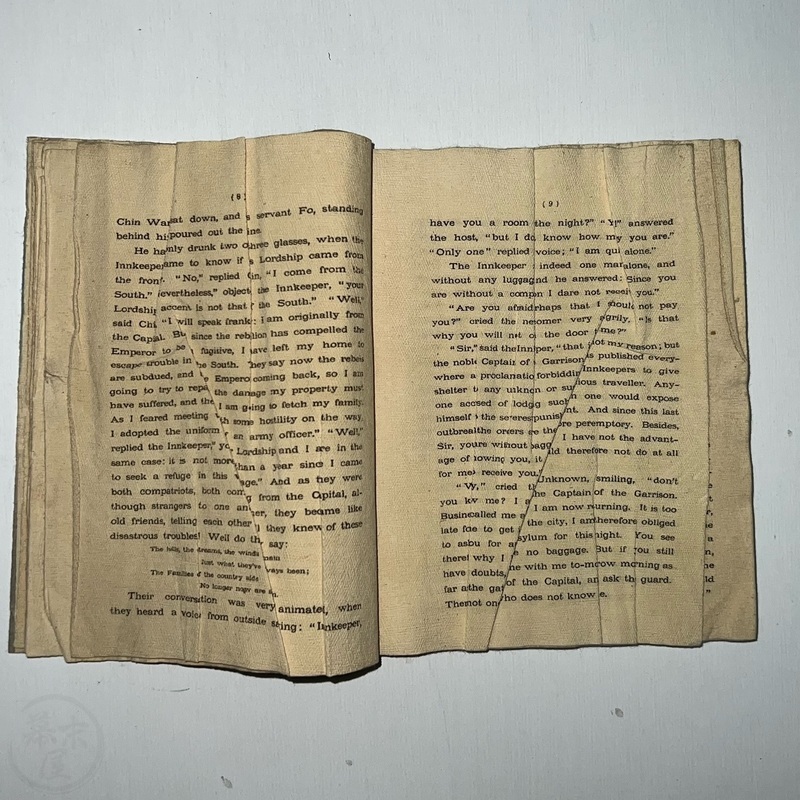 (8)
Chin Wa sat down, and servant Fo, standing
behind hi poured out the ine
He ha nly drunk two three glasses, when the
Innkeeper ame to know if Lordship came from
the front. "No," replied in, "I come from the
South." evertheless," object the Innkeeper, "your
Lordship accent is not that the South." "Well,"
said Chi "I will speak frank: I am originally from
the Capial. Bu since the rebllion has compelled the
Emperor to be fugitive, I have left my home to
escape trouble in he South. They say now the rebels
are subdued, and e Empero coming back, so I am
going to try to repa the damage my property must
have suffered, and the I am going to fetch my family.
As I feared meeting th some hostility on the way,
I adopted the uniform an army officer." "Well,"
replied the Innkeeper," yo Lordship and I are in the
same case: it is not more than a year since I came
to seek a refuge in this age." And as they were
both compatriots, both com g from the Capital, al-
though strangers to one an er, they became like
old friends, telling each other they knew of these
disastrous troubles! Well do th say:
The hills, the streams, the winds
Just what they've ways been;
The Families of the country side
No longer
Their conversation was very animated, when
they heard a voice from outside saing: "Innkeeper,
(9)
have you a room the night?" "Y!" answered
the host, "but I do know how my you are."
"Only one" replied voice; "I am qui alone."
The Innkeeper indeed one man alone, and
without any luggag nd he answered: Since you
are without a compan I dare not receive you."
"Are you afraid rhaps that I shoul not pay
you?" cried the ne omer very agrily, "is that
why you will not o the door me?"
"Sir," said the Inn per, "that not my reason; but
the noble Captain of Garrison is published every-
where a proclamatio forbiddin Innkeepers to give
shelter to any unknon or su ious traveller. Any-
one accused of lodgig such n one would expose
himself the seere punis nt. And since this last
outbreak the orers are re peremptory. Besides,
Sir, youre without agg I have not the advant-
age of owing you, it ld therefore not do at all
for me receive you."
"Vy," cried t Unknown, smiling, "don't
you kv me? I a he Captain of the Garrison.
Busine called me a I am now urning. It is too
late foe to get the city, I am therefore obliged
to as bu for a sylum for this ight. You see
there! why I no baggage. But if you still
have doubts, e with me to-mrow morning as
far a the ga of the Capital, an ask th guard.
The not on ho does not know e.